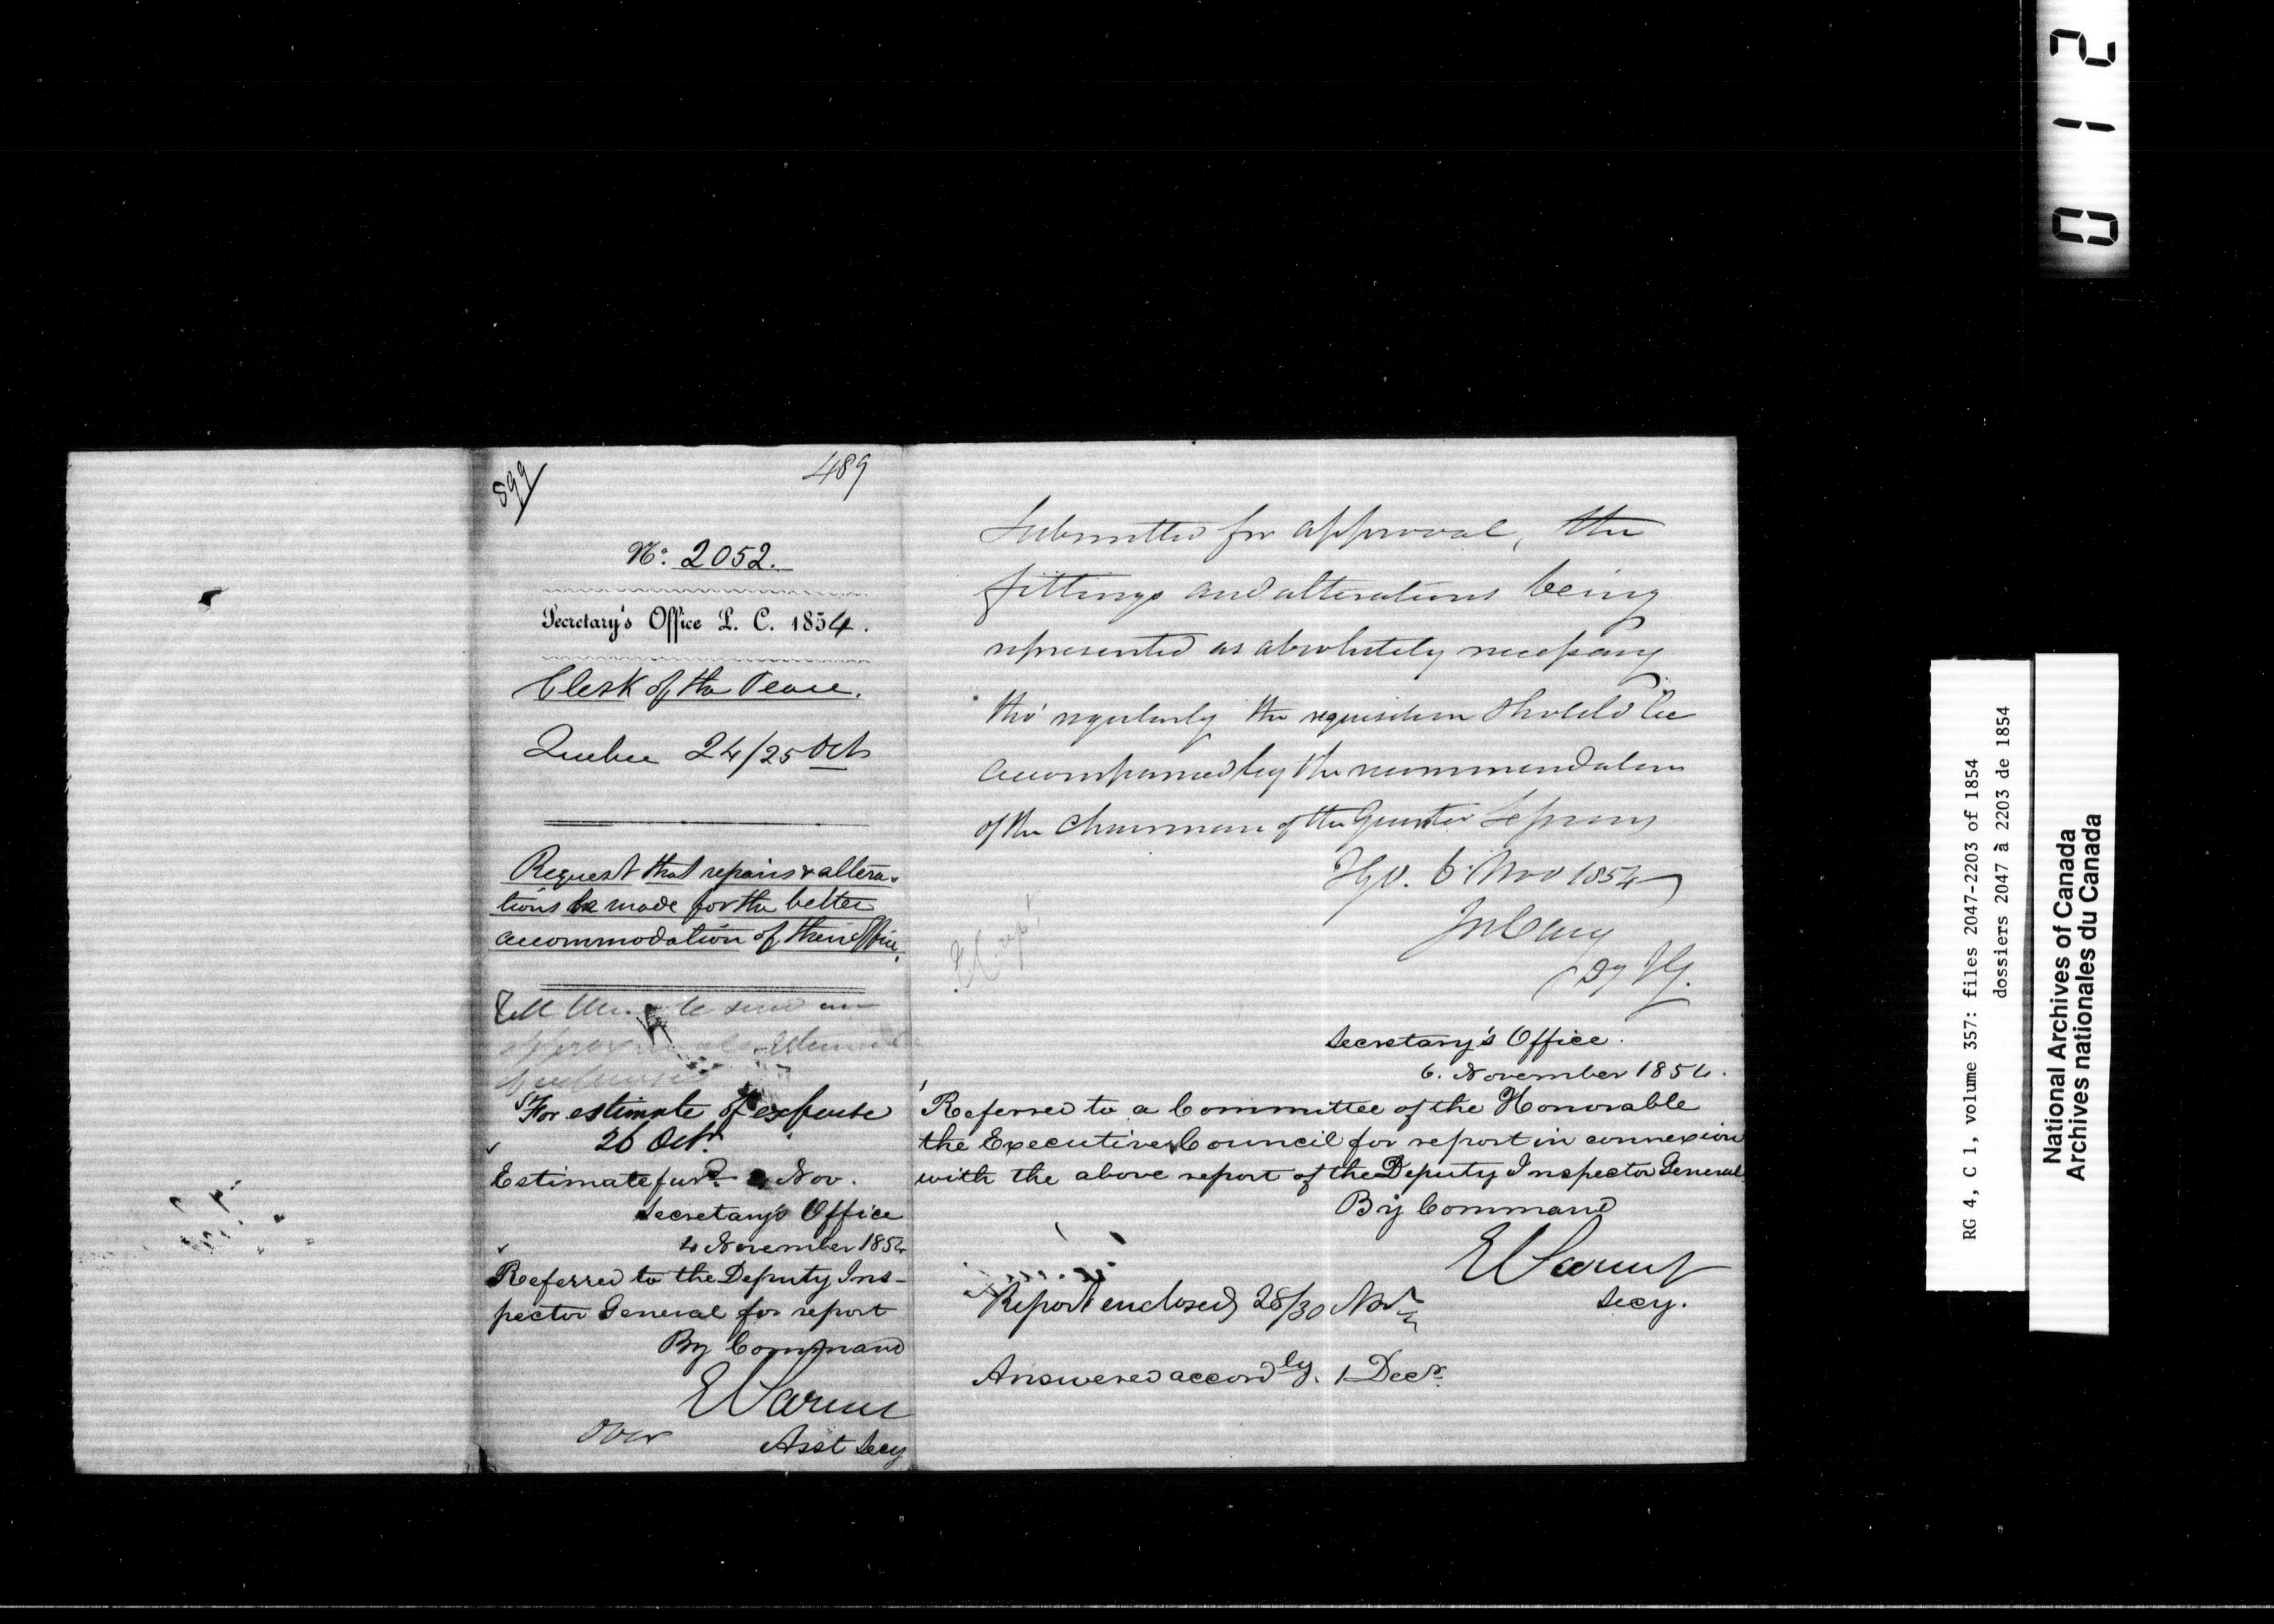 899
489
No. 2052.
Secretary's Office L. C. 1854.
Clerk of the Peace.
Quebec 24/25 Oct
Request that repairs & altera-
tions be made for the better
accommodation of their Office.
Tell them to send an
approximate Estimate
For estimate of expense
26 Octr.
Estimate furd. Nov.
Secretary's Office
4 November 1854
Referred to the Deputy Ins-
pector General for report
By Command
Asst Secy
Over
Submitted for approval, the
fittings and alterations being
represented as absolutely necessary
tho' regularly the requisition should be
accompanied by the recommendation
of the Chairman of the Quarter Sessions
IGO. 6 Nov 1854
Jos Cary
Dy IG.
Secretary's Office.
6. November 1854.
Referred to a Committee of the Honorable
the Executive Council for report in connexion
with the above report of the Deputy Inspector General
By Command
Secy.
Report enclosed 28/30 Novr
Answered accordly. 1 Decr.
012
RG 4, C 1, volume 357: files 2047-2203 of 1854
dossiers 2047 à 2203 de 1854
National Archives of Canada
Archives nationales du Canada